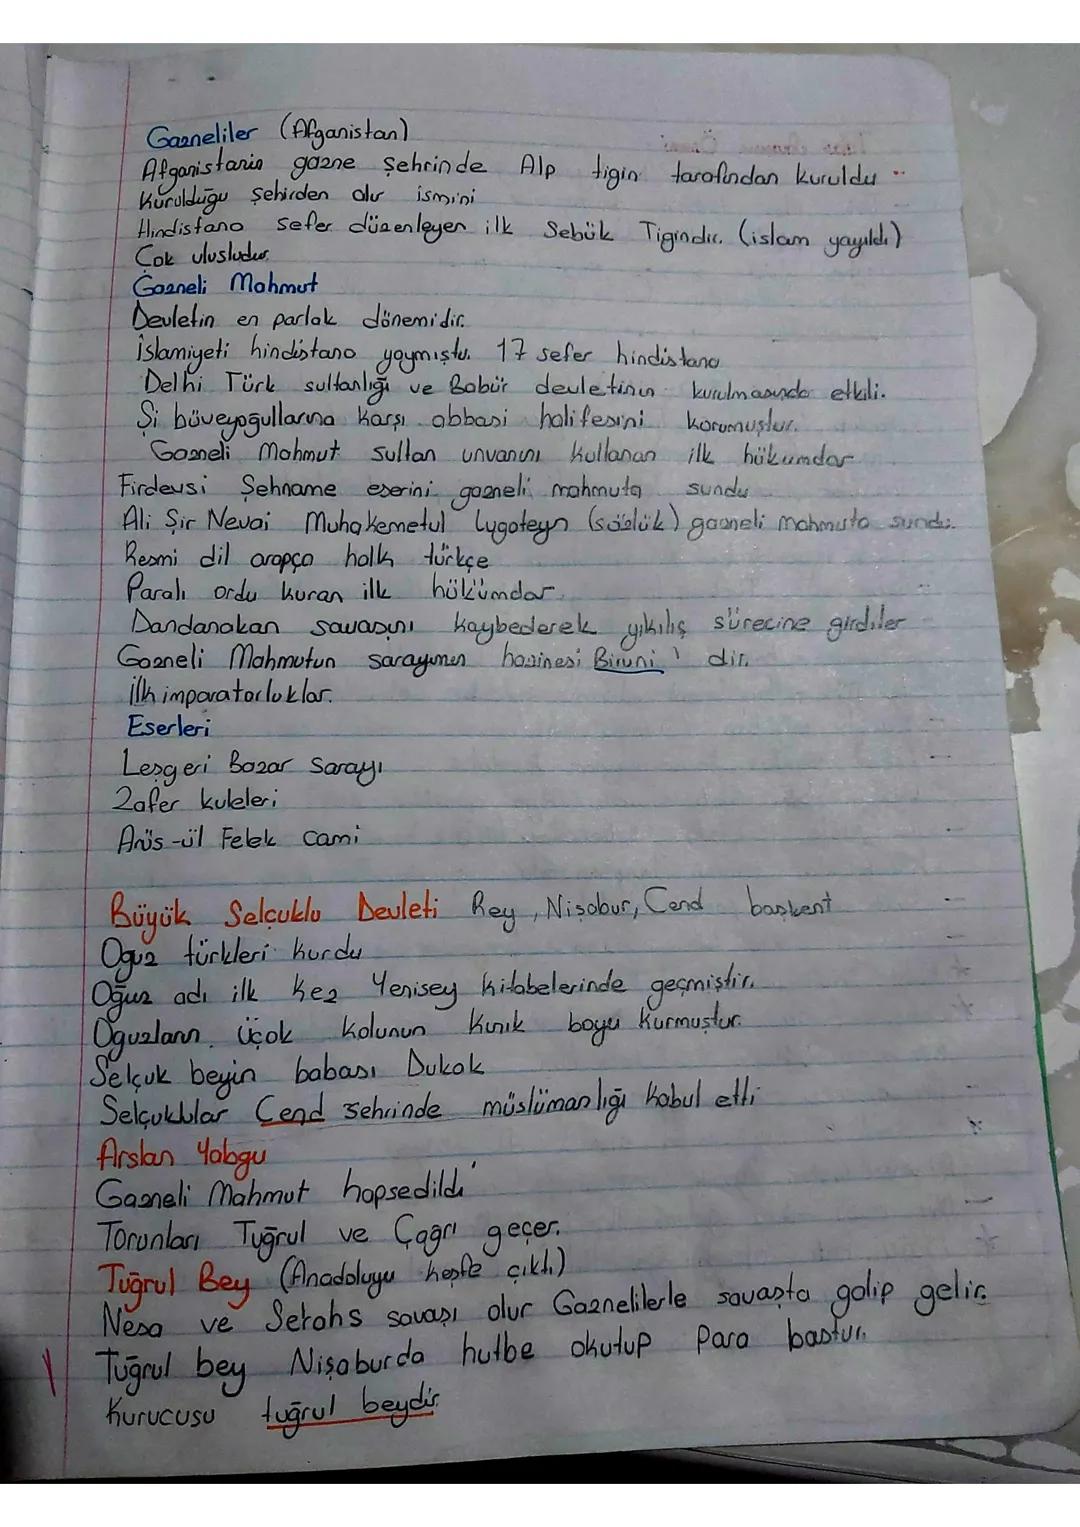 Gazneliler (Afganistan)
Afganistanın gazne şehrinde Alp tigin tarafından kuruldu
Kurulduğu şehirden alır ismini
Hindistana sefer düzenleyen ilk Sebük Tigindir. (islam yayıldı)
Çok ulusludur.
Gazneli Mahmut
Devletin en parlak dönemidir.
İslamiyeti hindistana yaymıştır. 17 sefer hindistana
Delhi Türk sultanlığı ve Babür devletinin kurulmasında etkili.
Şi büveyoğullarına karşı abbasi halifesini korumuştur.
Gazneli Mahmut sultan unvanını kullanan ilk hükümdar
Firdevsi Şehname eserini gazneli mahmuta sundu
Ali Şir Nevai Muhakemetul lugateyn (sözlük) gazneli mahmuta sundu.
Resmi dil arapça halk türkçe
Paralı ordu kuran ilk hükümdar.
Dandanakan savaşını kaybederek yıkılış sürecine girdiler
Gazneli Mahmutun sarayının hazinesi Biruni' dir.
İlk imparatorluklar.
Eserleri
Leşgeri Bazar Sarayı
Zafer kuleleri
Arüs-ül Felek Cami
Büyük Selçuklu Devleti Rey, Nişabur, Cend başkent
Oğuz türkleri kurdu
Oğuz adı ilk kez Yenisey kitabelerinde geçmiştir.
Oğuzların üçok kolunun kınık boyu kurmuştur.
Selçuk beyin babası Dukak
Selçuklular Cend şehrinde müslümanlığı kabul etti
Arslan Yabgu
Gazneli Mahmut hapsedildi
Torunları Tuğrul ve Çağrı geçer.
Tuğrul Bey (Anadoluyu keşfe çıktı)
Nesa ve Serahs savaşı olur Gaznelilerle savaşta galip gelir.
Tuğrul bey Nişaburda hutbe okutup para bastır.
Kurucusu tuğrul beydir.